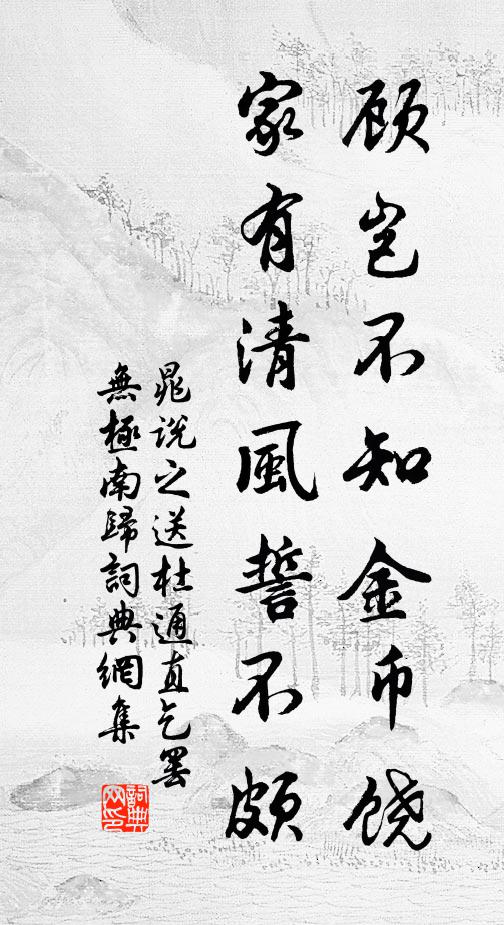 顾岂不知金币饶
家有清風誓不頗
晁說之送杜通直乞罢
無極南歸詞典網集
詞典网印